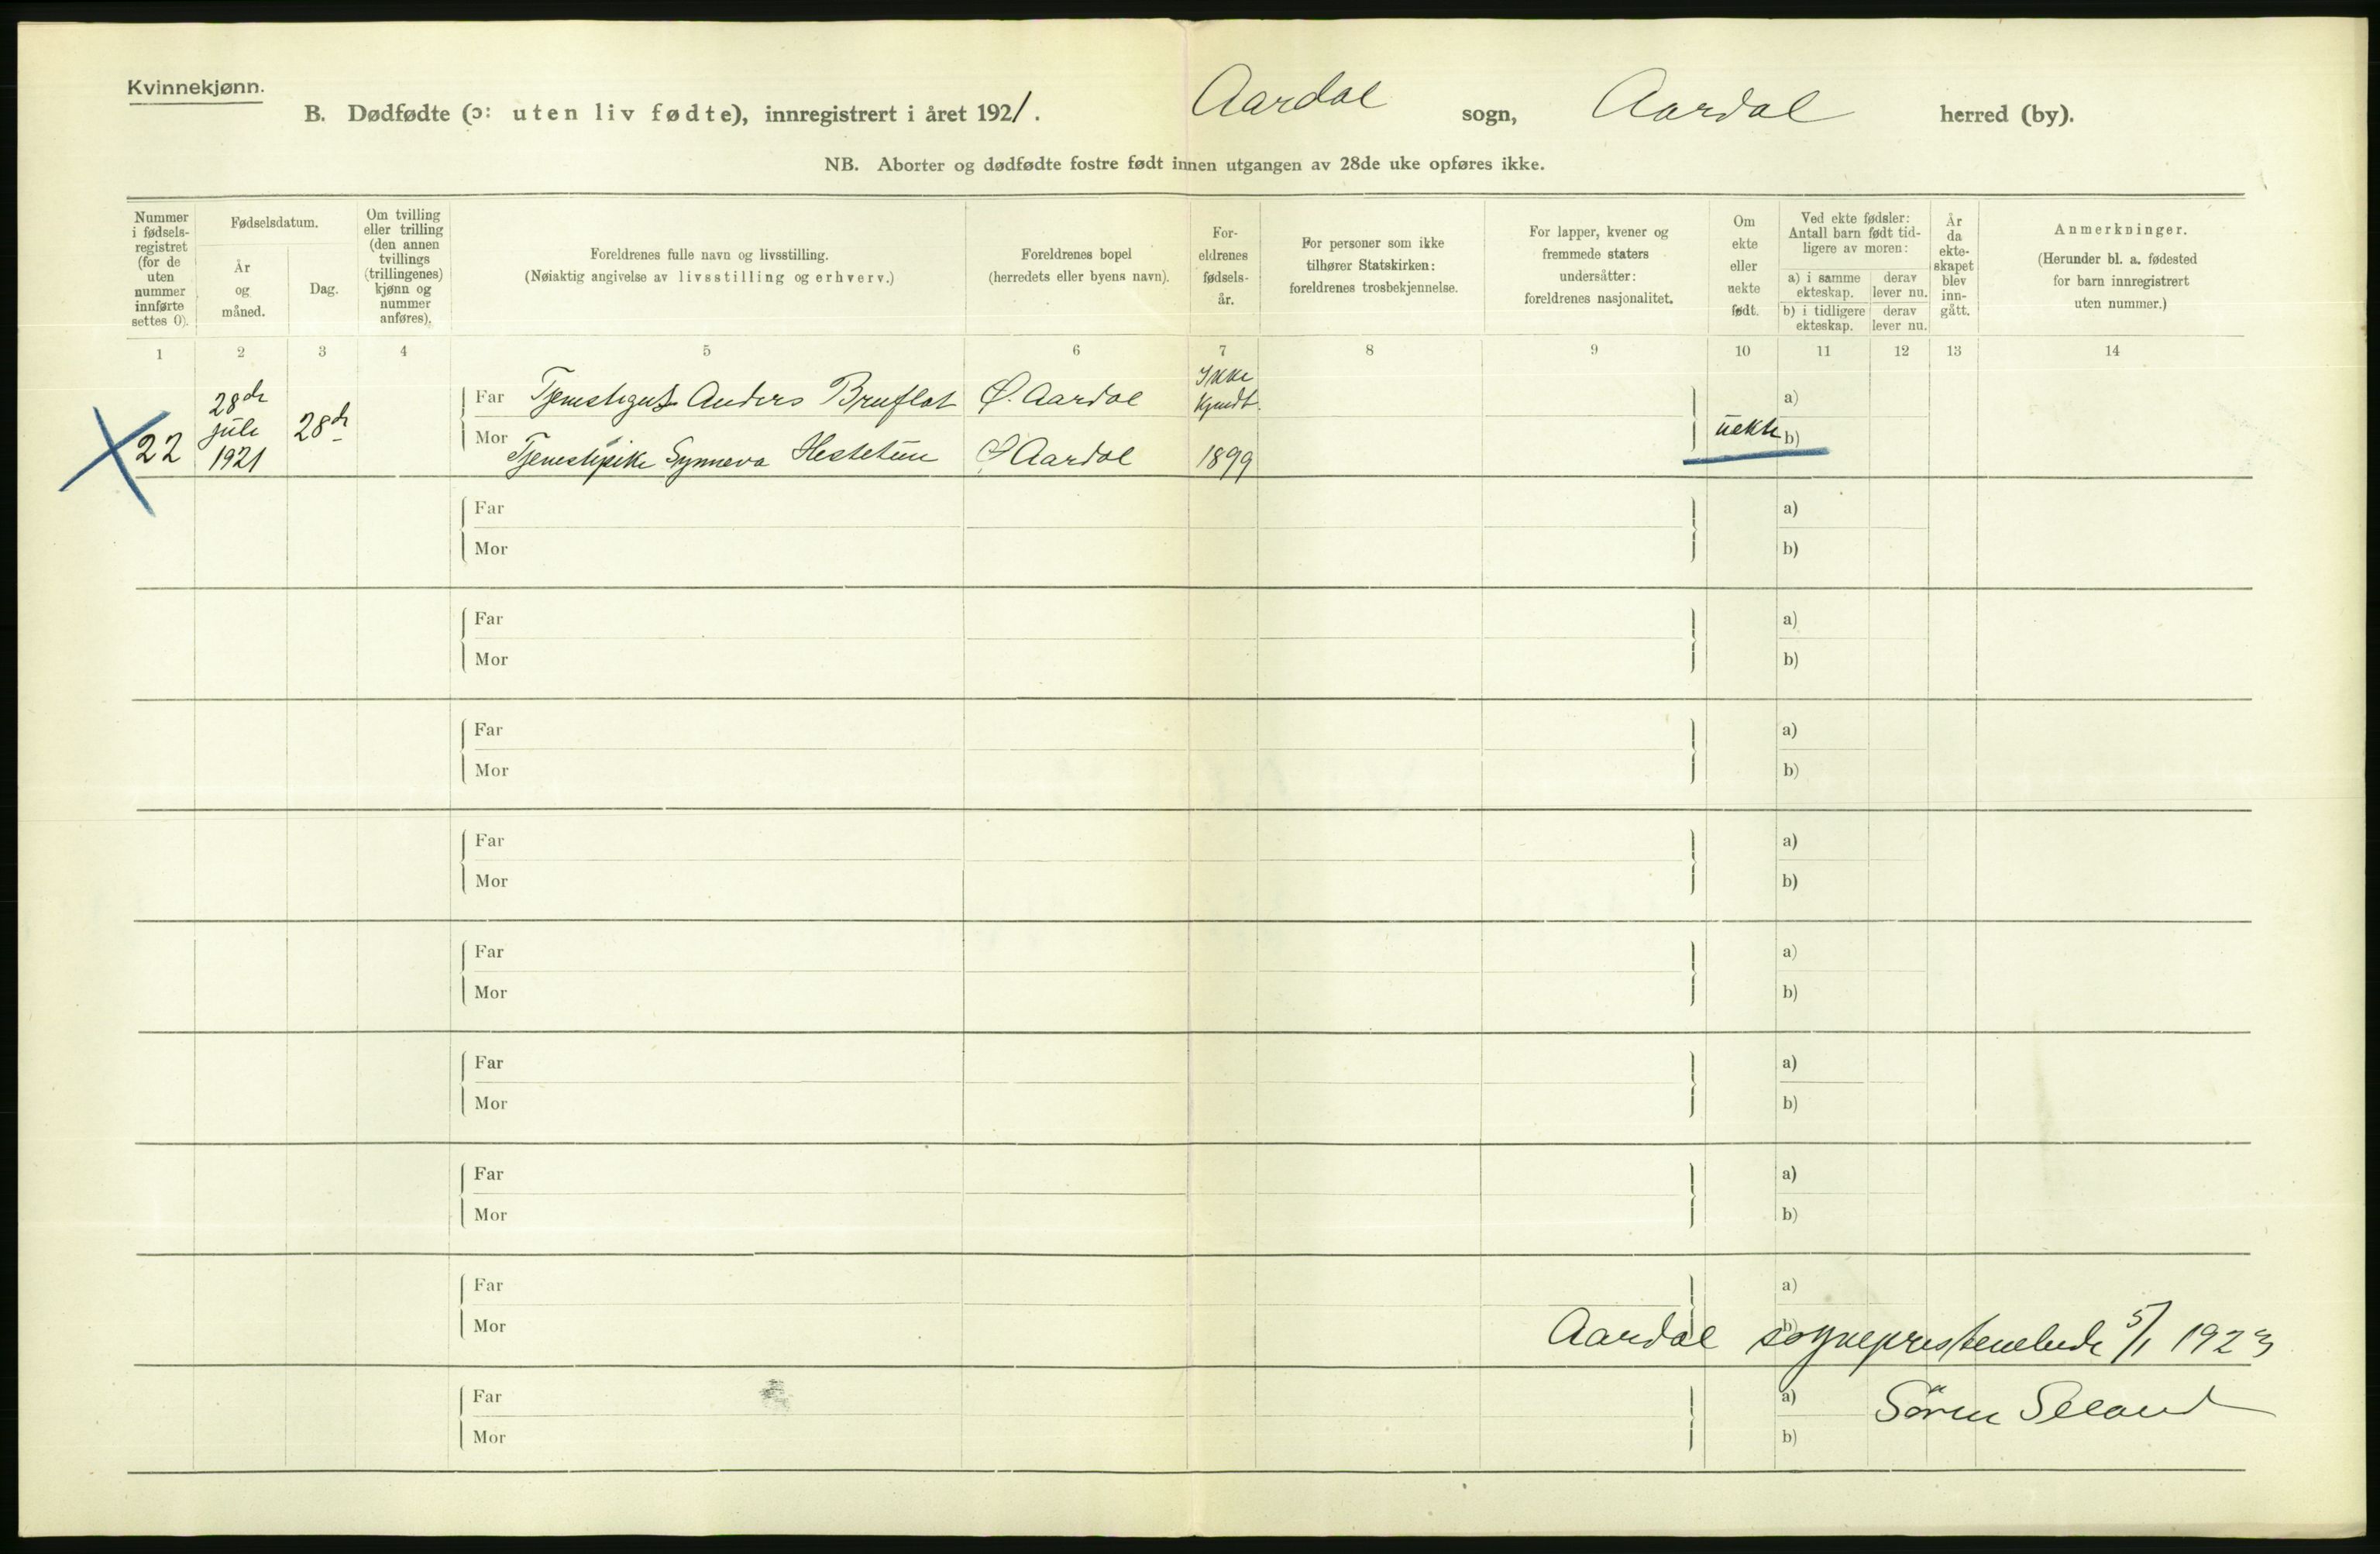 Kvinnekjønn.
B. Dødfødte (ɔ: uten liv fødte), innregistrert i året 1921. Aardal sogn, Aardal herred (by).
NB. Aborter og dødfødte fostre født innen utgangen av 28de uke opføres ikke.
Nummer
i fødsels-
registret
(for de
uten
nummer
innførte
settes 0).
Fødselsdatum.
År
og
måned.
Dag.
Om tvilling
eller trilling
(den annen
tvillings
(trillingenes)
kjønn og
nummer
anføres).
Foreldrenes fulle navn og livsstilling.
(Nøiaktig angivelse av livsstilling og erhverv.)
Foreldrenes bopel
(herredets eller byens navn).
For-
eldrenes
fødsels-
år.
For personer som ikke
tilhører Statskirken:
foreldrenes trosbekjennelse.
For lapper, kvener og
fremmede staters
undersåtter:
foreldrenes nasjonalitet.
Om
ekte
eller
uekte
født.
Ved ekte fødsler:
Antall barn født tid-
ligere av moren:
a) i samme
ekteskap.
derav
lever nu.
b) i tidligere
ekteskap.
derav
lever nu.
År
da
ekte-
skapet
blev
inn-
gått.
Anmerkninger.
(Herunder bl. a. fødested
for barn innregistrert
uten nummer.)
1 2 3 4 5 6 7 8 9 10 11 12 13 14
22
28de
juli
1921
28de
Far Tjenestegut Anders Bruflat Ø. Aardal Ikke
kjendt.
a)
Mor Tjenestepike Synneva Hestetun Ø. Aardal 1899
uekte b)
Far a)
Mor b)
Far a)
Mor b)
Far a)
Mor b)
Far a)
Mor b)
Far a)
Mor b)
Far a)
Mor b)
Far a)
Mor b)
Far a)
Mor b)
Aardal sogneprestembede 5/1 1923
Far a)
Søren Seland
Mor b)